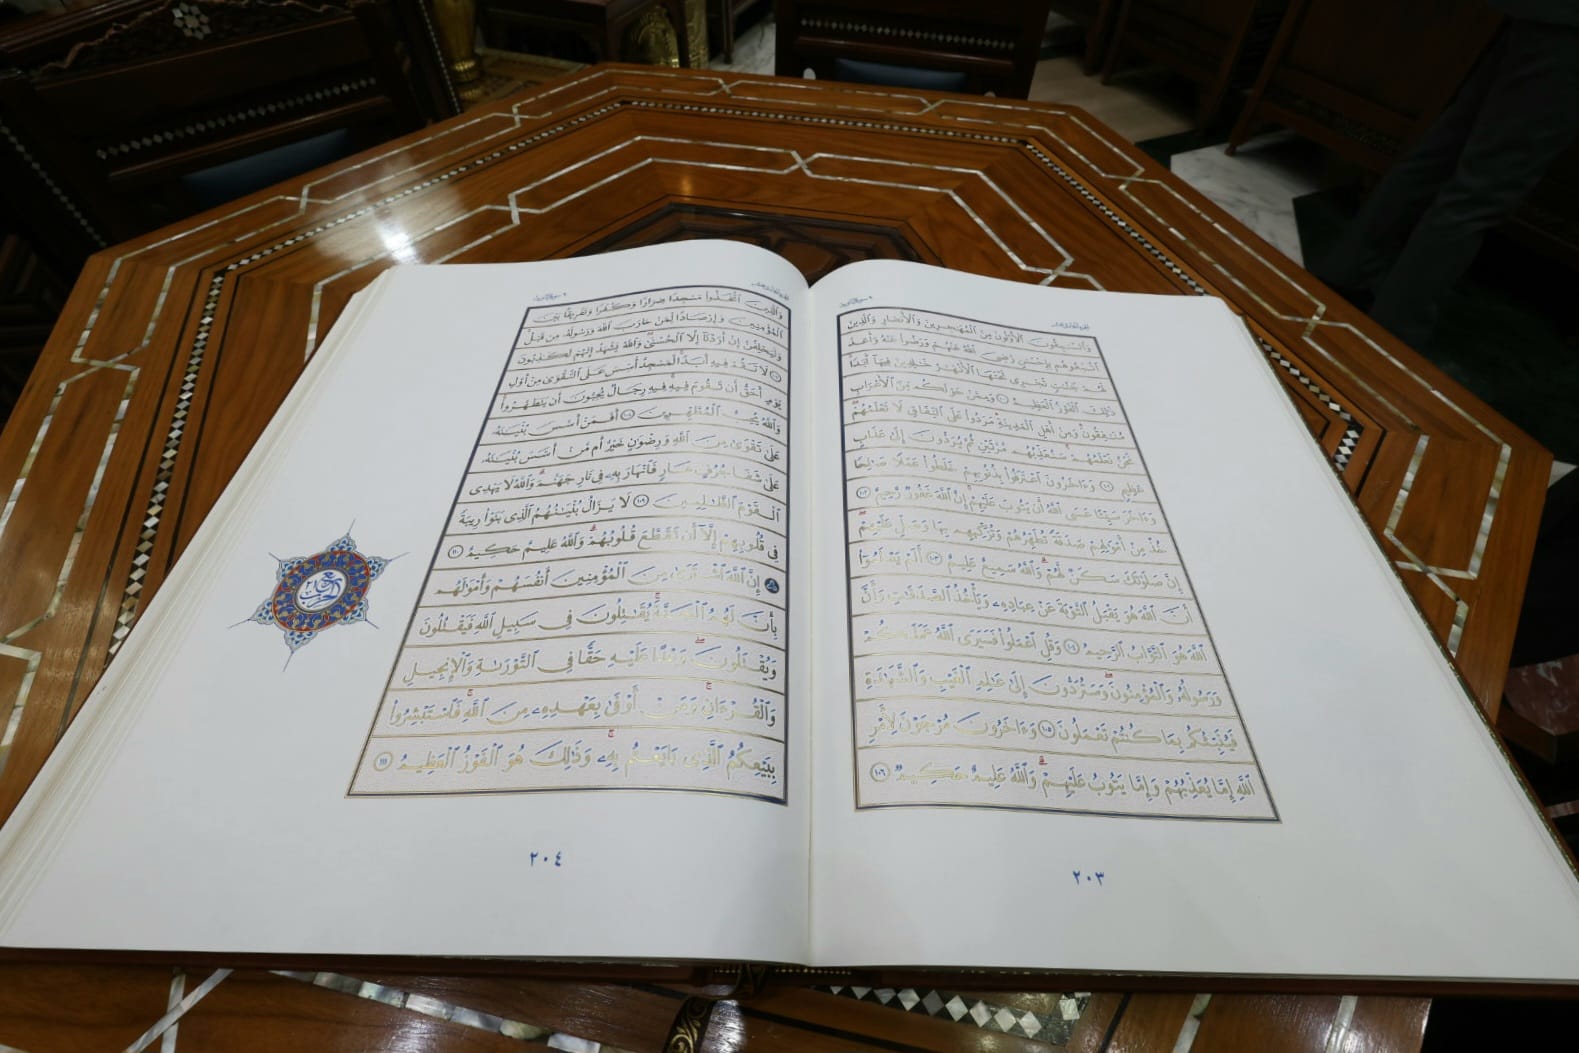 وَٱلسَّٰبِقُونَ ٱلْأَوَّلُونَ مِنَ ٱلْمُهَٰجِرِينَ وَٱلْأَنصَارِ وَٱلَّذِينَ
ٱتَّبَعُوهُم بِإِحْسَٰنٍ رَّضِىَ ٱللَّهُ عَنْهُمْ وَرَضُوا۟ عَنْهُ وَأَعَدَّ
لَهُمْ جَنَّٰتٍ تَجْرِى تَحْتَهَا ٱلْأَنْهَٰرُ خَٰلِدِينَ فِيهَآ أَبَدًا
ذَٰلِكَ ٱلْفَوْزُ ٱلْعَظِيمُ ١٠٠ وَمِمَّنْ حَوْلَكُم مِّنَ ٱلْأَعْرَابِ
مُنَٰفِقُونَ وَمِنْ أَهْلِ ٱلْمَدِينَةِ مَرَدُوا۟ عَلَى ٱلنِّفَاقِ لَا تَعْلَمُهُمْ
نَحْنُ نَعْلَمُهُمْ سَنُعَذِّبُهُم مَّرَّتَيْنِ ثُمَّ يُرَدُّونَ إِلَىٰ عَذَابٍ
عَظِيمٍ ١٠١ وَءَاخَرُونَ ٱعْتَرَفُوا۟ بِذُنُوبِهِمْ خَلَطُوا۟ عَمَلًا صَٰلِحًا
وَءَاخَرَ سَيِّئًا عَسَى ٱللَّهُ أَن يَتُوبَ عَلَيْهِمْ إِنَّ ٱللَّهَ غَفُورٌ رَّحِيمٌ ١٠٢
خُذْ مِنْ أَمْوَٰلِهِمْ صَدَقَةً تُطَهِّرُهُمْ وَتُزَكِّيهِم بِهَا وَصَلِّ عَلَيْهِمْ
إِنَّ صَلَوٰتَكَ سَكَنٌ لَّهُمْ وَٱللَّهُ سَمِيعٌ عَلِيمٌ ١٠٣ أَلَمْ يَعْلَمُوٓا۟
أَنَّ ٱللَّهَ هُوَ يَقْبَلُ ٱلتَّوْبَةَ عَنْ عِبَادِهِۦ وَيَأْخُذُ ٱلصَّدَقَٰتِ وَأَنَّ
ٱللَّهَ هُوَ ٱلتَّوَّابُ ٱلرَّحِيمُ ١٠٤ وَقُلِ ٱعْمَلُوا۟ فَسَيَرَى ٱللَّهُ عَمَلَكُمْ
وَرَسُولُهُۥ وَٱلْمُؤْمِنُونَ وَسَتُرَدُّونَ إِلَىٰ عَٰلِمِ ٱلْغَيْبِ وَٱلشَّهَٰدَةِ
فَيُنَبِّئُكُم بِمَا كُنتُمْ تَعْمَلُونَ ١٠٥ وَءَاخَرُونَ مُرْجَوْنَ لِأَمْرِ
ٱللَّهِ إِمَّا يُعَذِّبُهُمْ وَإِمَّا يَتُوبُ عَلَيْهِمْ وَٱللَّهُ عَلِيمٌ حَكِيمٌ ١٠٦
٢٠٣
وَٱلَّذِينَ ٱتَّخَذُوا۟ مَسْجِدًا ضِرَارًا وَكُفْرًا وَتَفْرِيقًۢا بَيْنَ
ٱلْمُؤْمِنِينَ وَإِرْصَادًا لِّمَنْ حَارَبَ ٱللَّهَ وَرَسُولَهُۥ مِن قَبْلُ
وَلَيَحْلِفُنَّ إِنْ أَرَدْنَآ إِلَّا ٱلْحُسْنَىٰ وَٱللَّهُ يَشْهَدُ إِنَّهُمْ لَكَٰذِبُونَ
١٠٧ لَا تَقُمْ فِيهِ أَبَدًا لَّمَسْجِدٌ أُسِّسَ عَلَى ٱلتَّقْوَىٰ مِنْ أَوَّلِ
يَوْمٍ أَحَقُّ أَن تَقُومَ فِيهِ فِيهِ رِجَالٌ يُحِبُّونَ أَن يَتَطَهَّرُوا۟
وَٱللَّهُ يُحِبُّ ٱلْمُطَّهِّرِينَ ١٠٨ أَفَمَنْ أَسَّسَ بُنْيَٰنَهُۥ
عَلَىٰ تَقْوَىٰ مِنَ ٱللَّهِ وَرِضْوَٰنٍ خَيْرٌ أَم مَّنْ أَسَّسَ بُنْيَٰنَهُۥ
عَلَىٰ شَفَا جُرُفٍ هَارٍ فَٱنْهَارَ بِهِۦ فِى نَارِ جَهَنَّمَ وَٱللَّهُ لَا يَهْدِى
ٱلْقَوْمَ ٱلظَّٰلِمِينَ ١٠٩ لَا يَزَالُ بُنْيَٰنُهُمُ ٱلَّذِى بَنَوْا۟ رِيبَةً
فِى قُلُوبِهِمْ إِلَّآ أَن تَقَطَّعَ قُلُوبُهُمْ وَٱللَّهُ عَلِيمٌ حَكِيمٌ ١١٠
إِنَّ ٱللَّهَ ٱشْتَرَىٰ مِنَ ٱلْمُؤْمِنِينَ أَنفُسَهُمْ وَأَمْوَٰلَهُم
بِأَنَّ لَهُمُ ٱلْجَنَّةَ يُقَٰتِلُونَ فِى سَبِيلِ ٱللَّهِ فَيَقْتُلُونَ
وَيُقْتَلُونَ وَعْدًا عَلَيْهِ حَقًّا فِى ٱلتَّوْرَىٰةِ وَٱلْإِنجِيلِ
وَٱلْقُرْءَانِ وَمَنْ أَوْفَىٰ بِعَهْدِهِۦ مِنَ ٱللَّهِ فَٱسْتَبْشِرُوا۟
بِبَيْعِكُمُ ٱلَّذِى بَايَعْتُم بِهِۦ وَذَٰلِكَ هُوَ ٱلْفَوْزُ ٱلْعَظِيمُ ١١١
٢٠٤